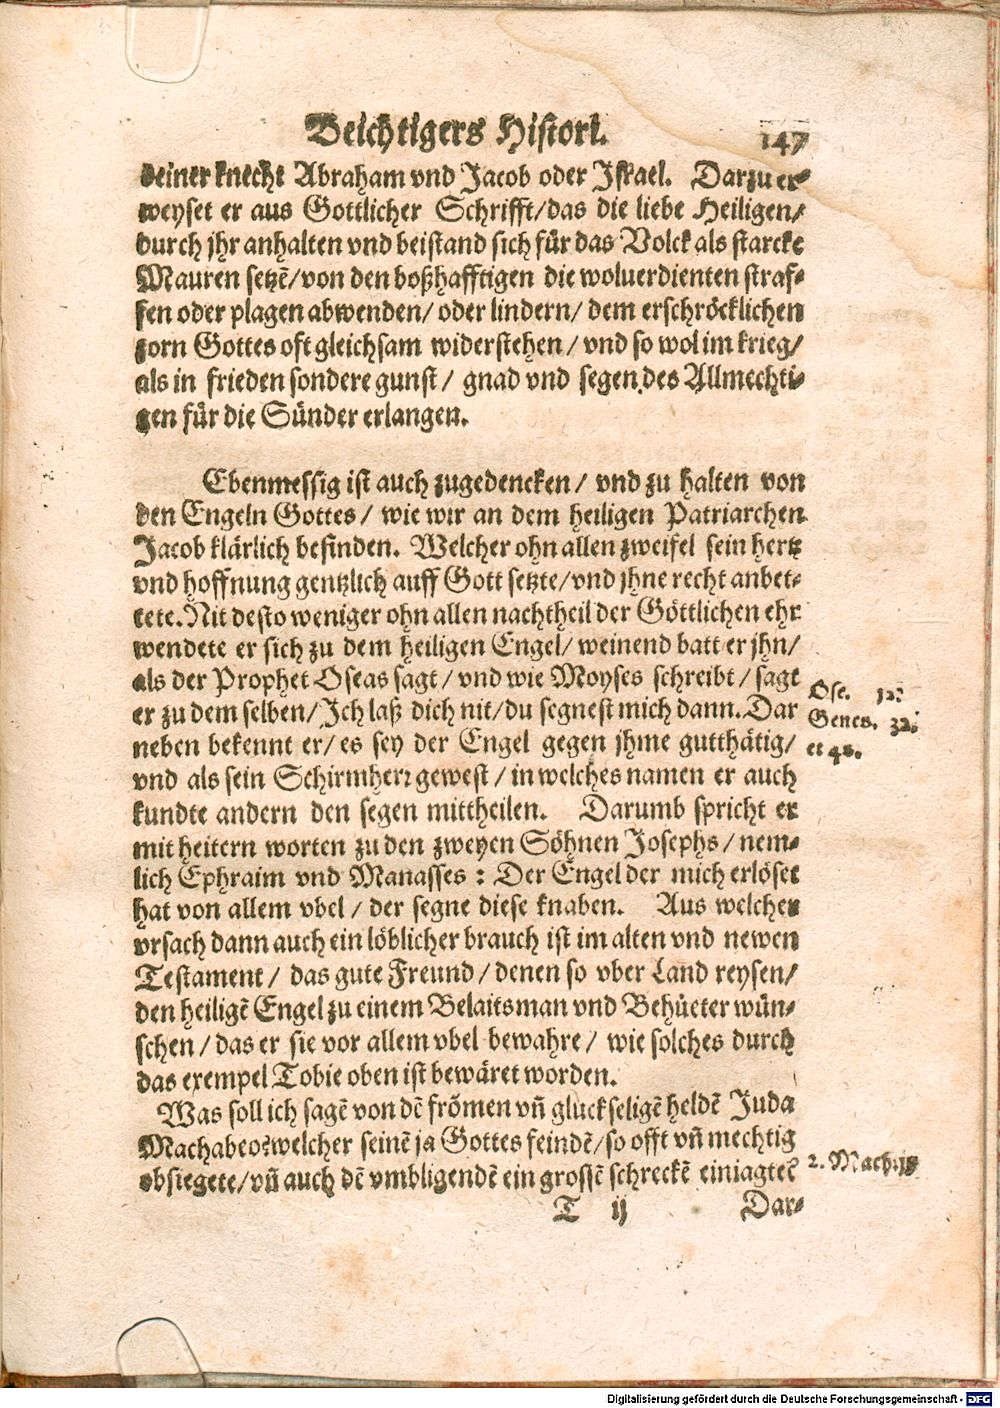 Beichtigers Histori. 147
deiner knecht Abraham vnd Jacob oder Israel. Darzu er-
weyset er aus Gottlicher Schrifft/das die liebe Heiligen/
durch jhr anhalten vnd beistand sich für das Volck als starcke
Mauren setzẽ/von den boßhafftigen die woluerdienten straf-
fen oder plagen abwenden/ oder lindern/ dem erschröcklichen
zorn Gottes oft gleichsam widerstehen/ vnd so wol im krieg/
als in frieden sondere gunst/ gnad vnd segen des Allmechti-
gen für die Sünder erlangen.
Ebenmessig ist auch zugedencken/ vnd zu halten von
den Engeln Gottes/ wie wir an dem heiligen Patriarchen
Jacob klärlich befinden. Welcher ohn allen zweifel sein hertz
vnd hoffnung gentzlich auff Gott setzte/vnd jhne recht anbet-
tete. Nit desto weniger ohn allen nachtheil der Göttlichen ehr
wendete er sich zu dem heiligen Engel/ weinend batt er jhn/
als der Prophet Oseas sagt/ vnd wie Moyses schreibt/ sagt
er zu dem selben/ Ich laß dich nit/du segnest mich dann. Dar
neben bekennt er/ es sey der Engel gegen jhme gutthätig/
vnd als sein Schirmherr gewest/ in welches namen er auch
kundte andern den segen mittheilen. Darumb spricht er
mit heitern worten zu den zweyen Söhnen Josephs/ nem-
lich Ephraim vnd Manasses: Der Engel der mich erlöset
hat von allem vbel/ der segne diese knaben. Aus welcher
vrsach dann auch ein löblicher brauch ist im alten vnd newen
Testament/ das gute Freund/ denen so vber Land reysen/
den heiligẽ Engel zu einem Belaitsman vnd Behüeter wün-
schen/ das er sie vor allem vbel bewahre/ wie solches durch
das exempel Tobie oben ist bewäret worden.
Was soll ich sagẽ von dẽ frõmen vñ gluckseligẽ heldẽ Juda
Machabeo? welcher seinẽ ja Gottes feindẽ/so offt vñ mechtig
obsiegete/vñ auch dẽ vmbligendẽ ein grossẽ schreckẽ einiagte?
T ij Dar-
Ose. 12.
Genes. 32.
et 48.
2. Mach. 15
Digitalisierung gefördert durch die Deutsche Forschungsgemeinschaft - DFG